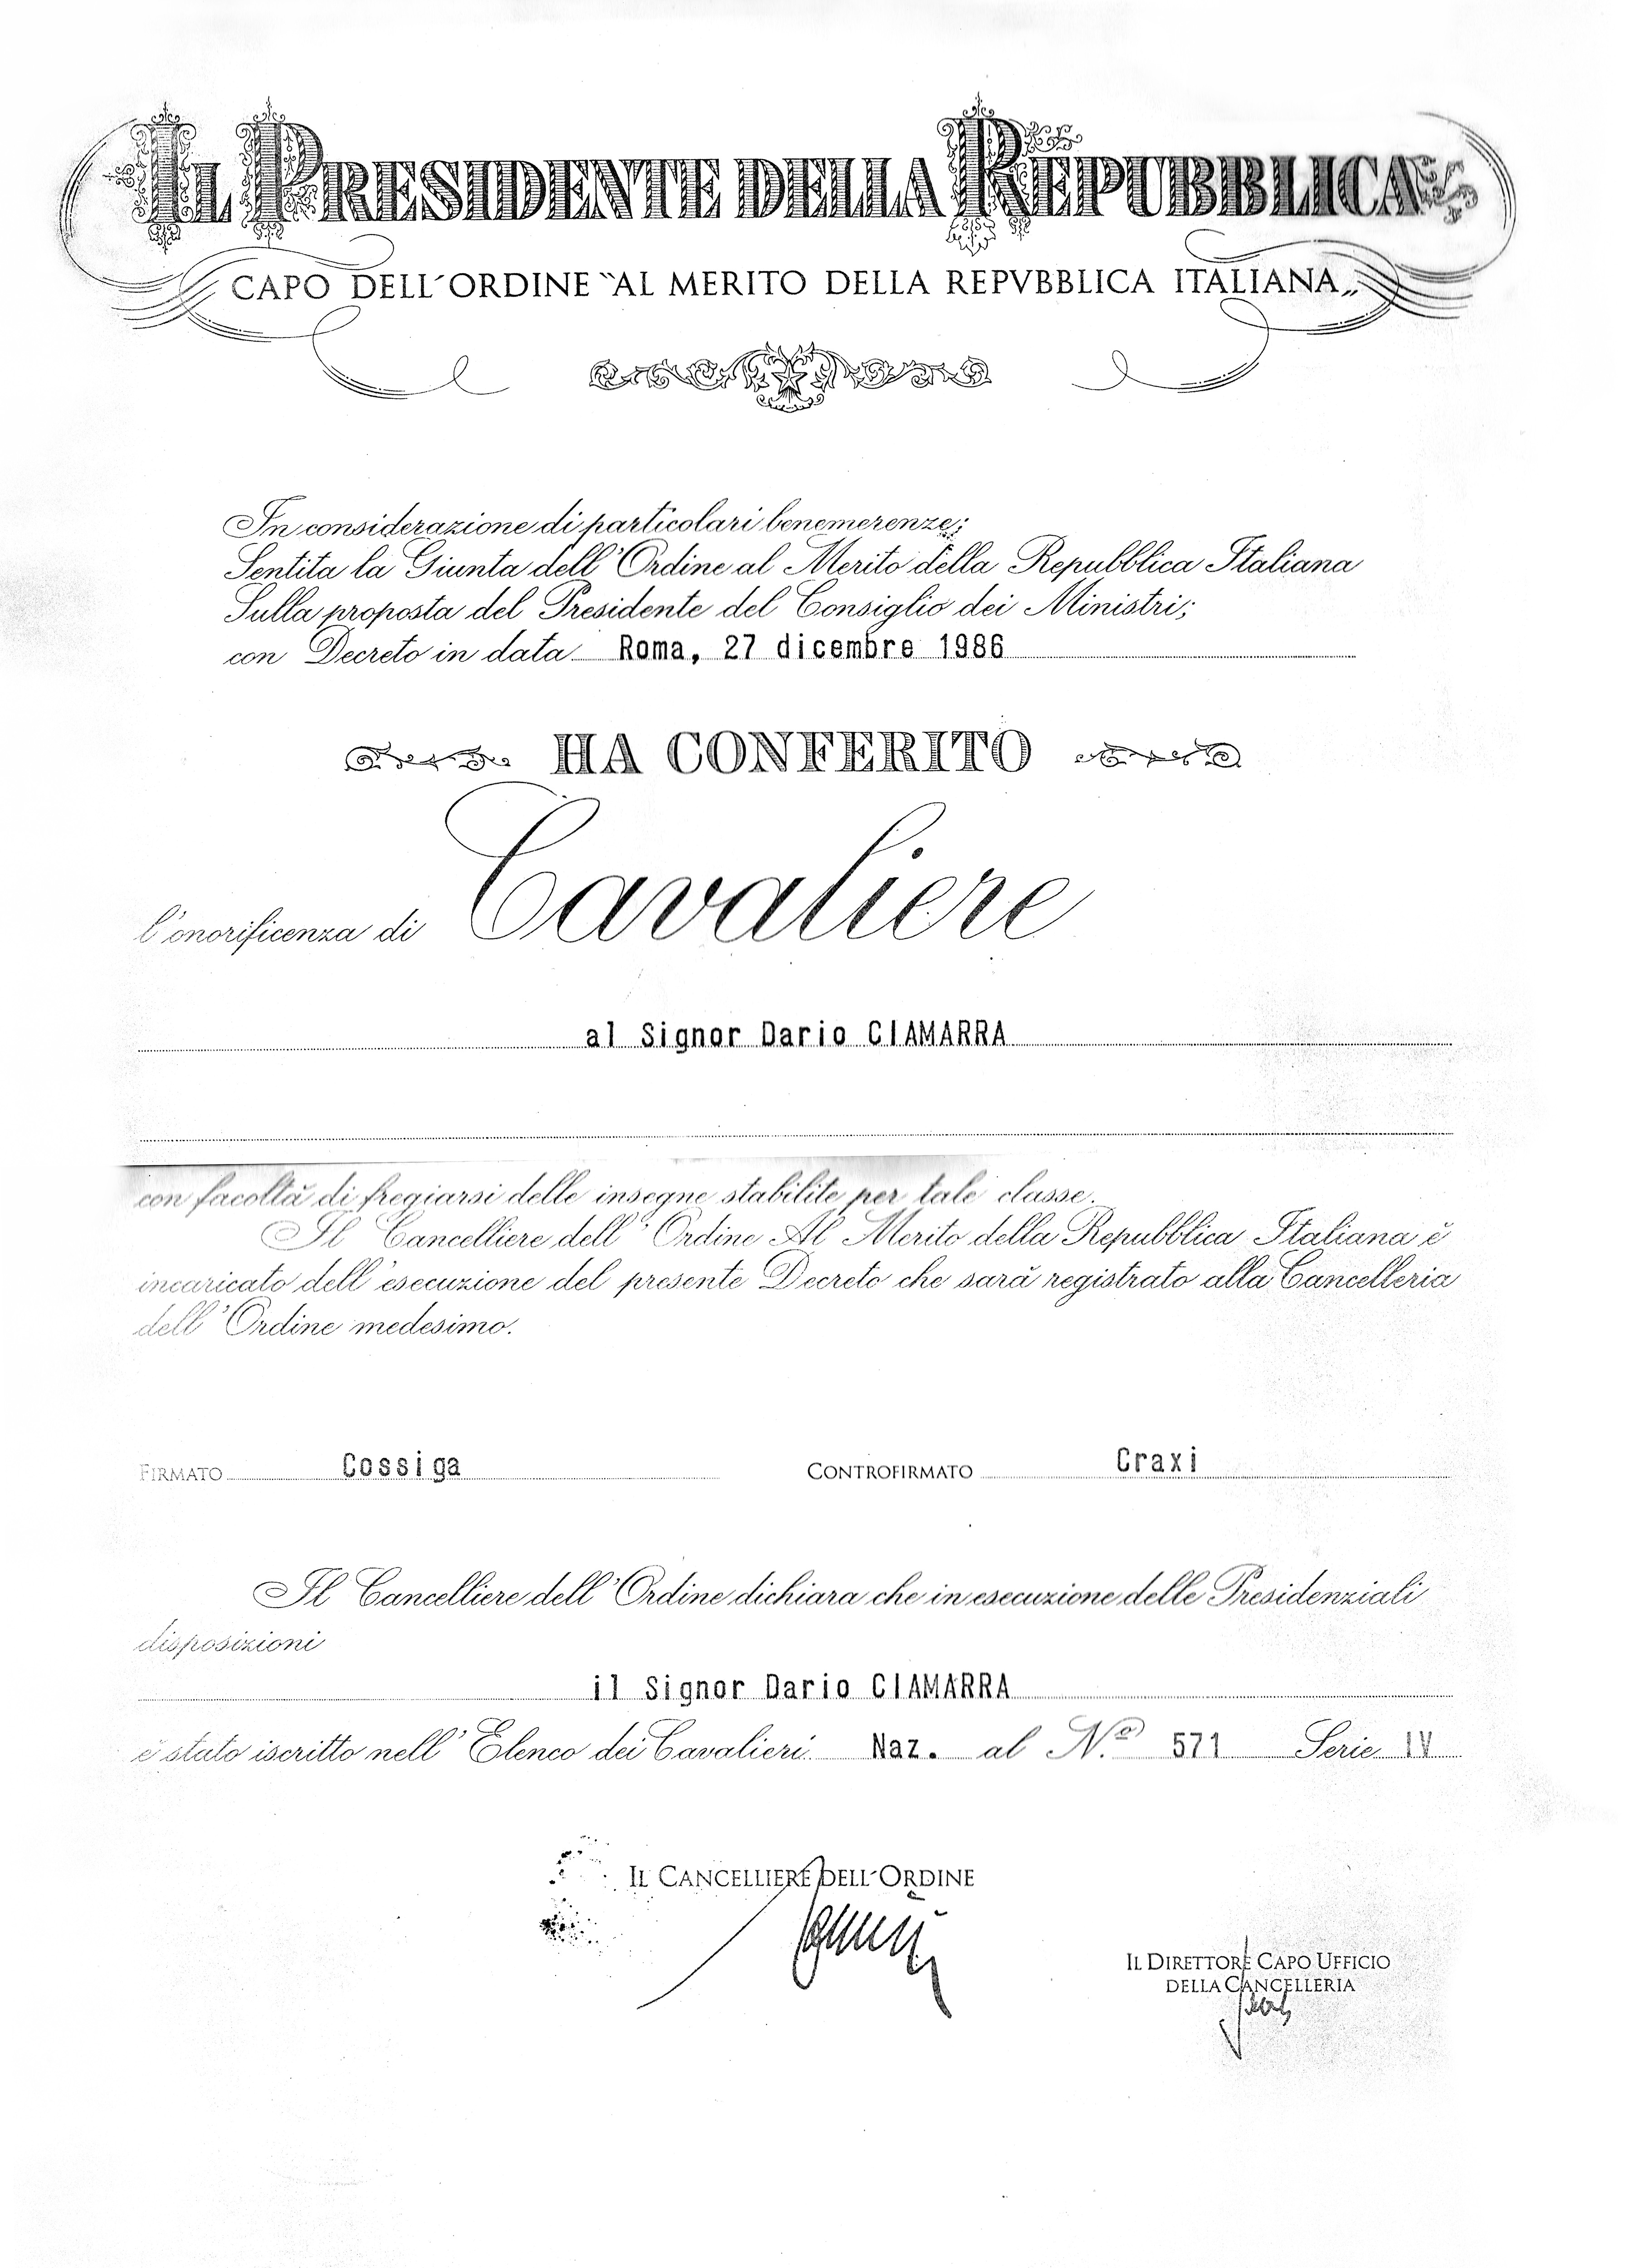 IL PRESIDENTE DELLA REPUBBLICA
CAPO DELL'ORDINE “AL MERITO DELLA REPVBBLICA ITALIANA„
In considerazione di particolari benemerenze;
Sentita la Giunta dell'Ordine al Merito della Repubblica Italiana
Sulla proposta del Presidente del Consiglio dei Ministri;
con Decreto in data Roma, 27 dicembre 1986
HA CONFERITO
l'onorificenza di Cavaliere
al Signor Dario CIAMARRA
con facoltà di fregiarsi delle insegne stabilite per tale classe.
Il Cancelliere dell'Ordine Al Merito della Repubblica Italiana è
incaricato dell'esecuzione del presente Decreto che sarà registrato alla Cancelleria
dell'Ordine medesimo.
FIRMATO Cossiga CONTROFIRMATO Craxi
Il Cancelliere dell'Ordine dichiara che in esecuzione delle Presidenziali
disposizioni
il Signor Dario CIAMARRA
è stato iscritto nell'Elenco dei Cavalieri Naz. al N.º 571 Serie IV
IL CANCELLIERE DELL'ORDINE
IL DIRETTORE CAPO UFFICIO
DELLA CANCELLERIA